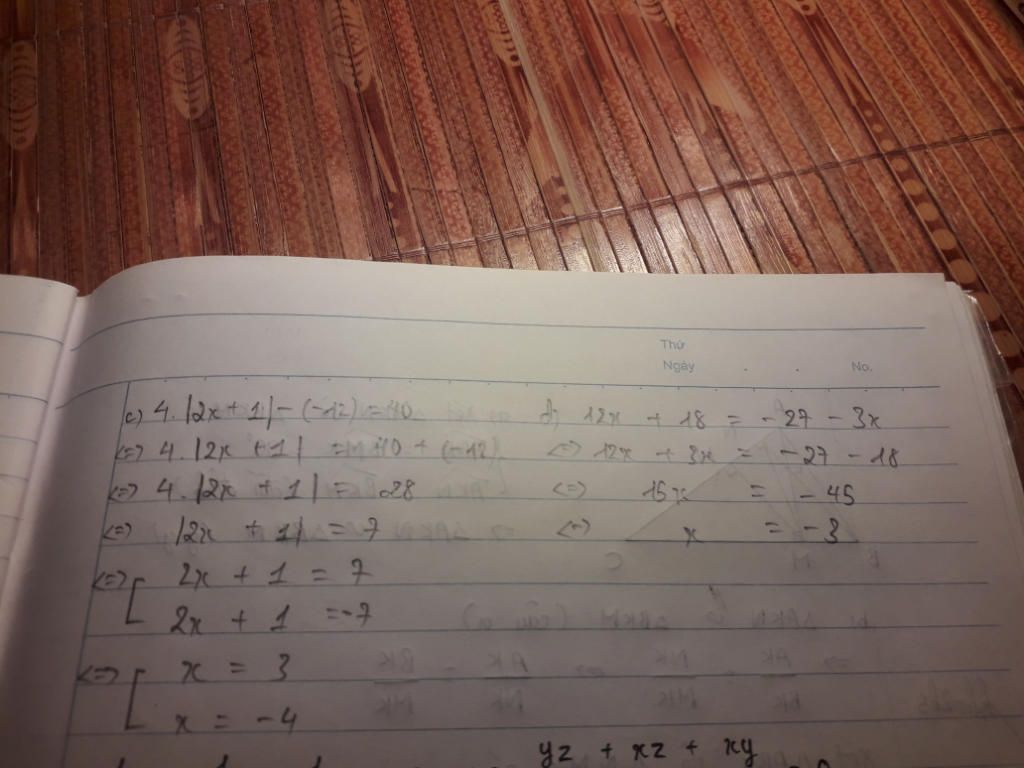 Thứ
Ngày . . No.
c) 4.|2x+1| - (-12) = 40
<=> 4.|2x +1| = 40 + (-12)
<=> 4.|2x + 1| = 28
<=> |2x + 1| = 7
<=> [ 2x + 1 = 7
2x + 1 = -7
<=> [ x = 3
x = -4
d) 12x + 18 = -27 - 3x
<=> 12x + 3x = -27 - 18
<=> 15x = -45
<=> x = -3
yz + xz + xy